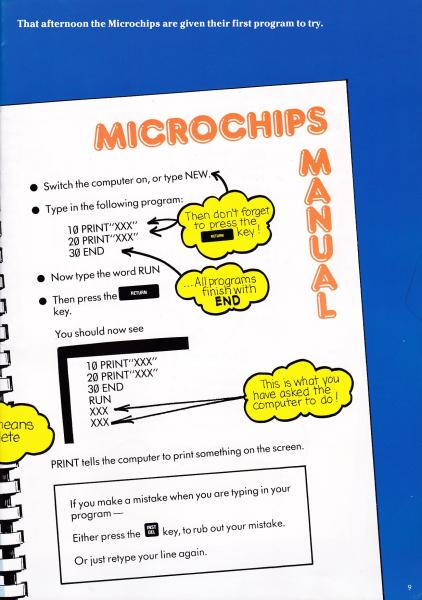 That afternoon the Microchips are given their first program to try.
MICROCHIPS
MANUAL
● Switch the computer on, or type NEW.
● Type in the following program:
10 PRINT"XXX"
20 PRINT"XXX"
30 END
Then don't forget
to press the
RETURN key!
● Now type the word RUN
● Then press the RETURN
key.
...All programs
finish with
END
You should now see
10 PRINT"XXX"
20 PRINT"XXX"
30 END
RUN
XXX
XXX
This is what you
have asked the
computer to do!
means
lete
PRINT tells the computer to print something on the screen.
If you make a mistake when you are typing in your
program —
Either press the INST DEL key, to rub out your mistake.
Or just retype your line again.
9